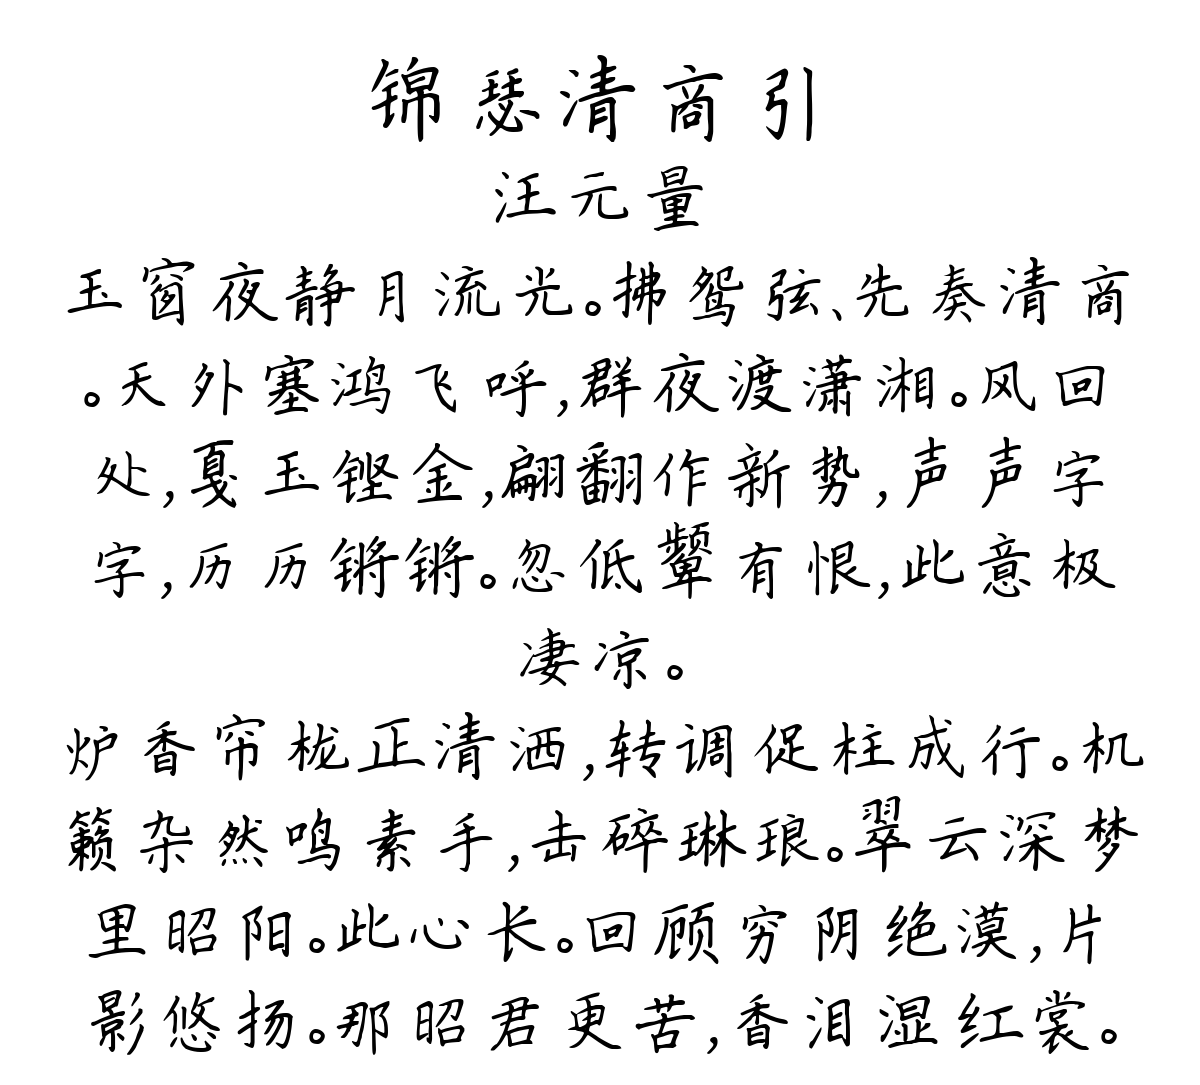 锦瑟清商引
汪元量
玉窗夜静月流光。拂鸳弦、先奏清商
。天外塞鸿飞呼,群夜渡潇湘。风回
处,戛玉铿金,翩翻作新势,声声字
字,历历锵锵。忽低颦有恨,此意极
凄凉。
炉香帘栊正清洒,转调促柱成行。机
籁杂然鸣素手,击碎琳琅。翠云深梦
里昭阳。此心长。回顾穷阴绝漠,片
影悠扬。那昭君更苦,香泪湿红裳。